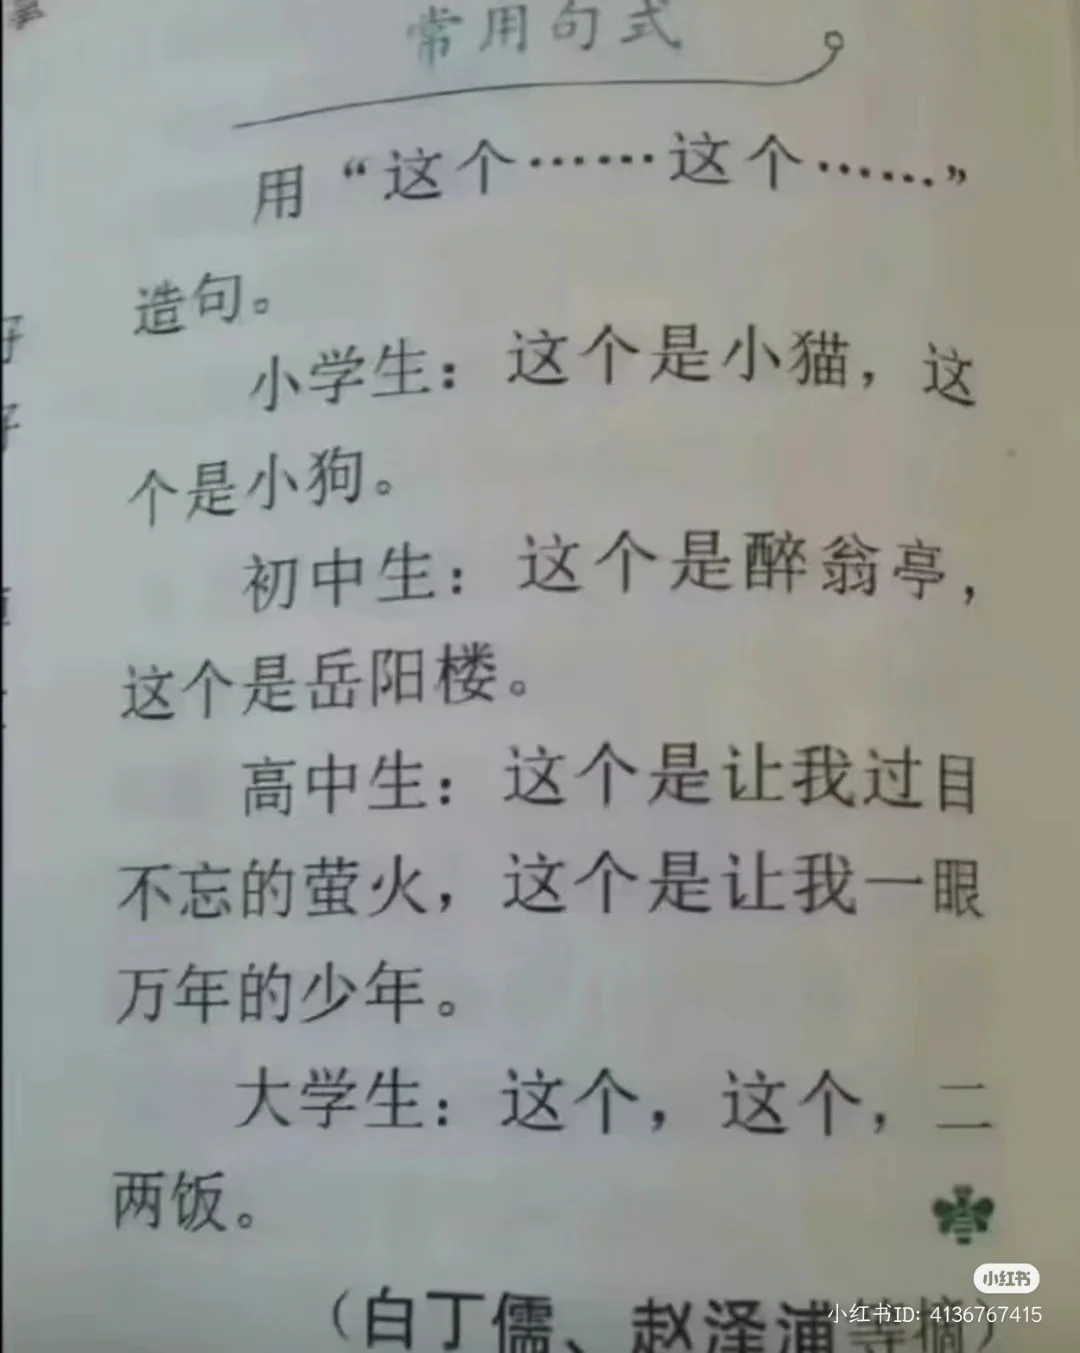 常用句式
用“这个……这个……”
造句。
小学生：这个是小猫，这
个是小狗。
初中生：这个是醉翁亭，
这个是岳阳楼。
高中生：这个是让我过目
不忘的萤火，这个是让我一眼
万年的少年。
大学生：这个，这个，二
两饭。
（白丁儒、赵泽浦等摘）
小红书
小红书ID: 4136767415